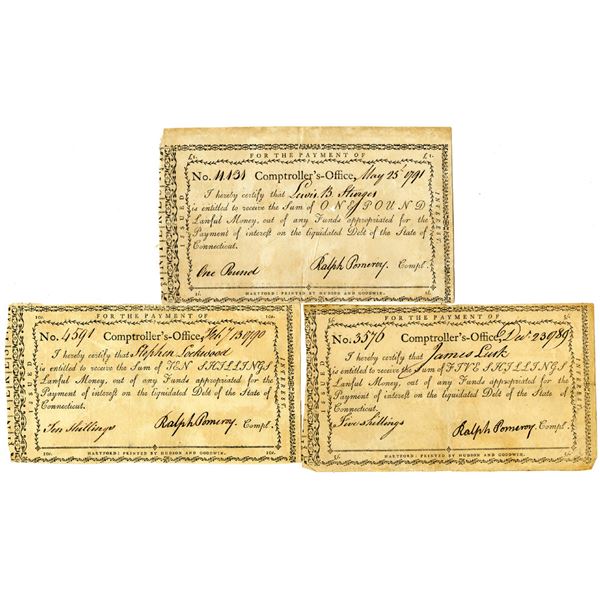 FOR THE PAYMENT OF
£1. £1.
No. 4434 Comptroller's-Office, May 25th 1791
I hereby certify that Lewis B. Sturges
is entitled to receive the Sum of ONE POUND
Lawful Money, out of any Funds appropriated for the
Payment of interest on the liquidated Debt of the State of
Connecticut.
One Pound Ralph Pomeroy. Compl.
HARTFORD: PRINTED BY HUDSON AND GOODWIN.
ISSUED
INTEREST.
FOR THE PAYMENT OF
10s. 10s.
No. 4591 Comptroller's-Office, 1790
I hereby certify that Stephen Lockwood
is entitled to receive the Sum of TEN SHILLINGS
Lawful Money, out of any Funds appropriated for the
Payment of interest on the liquidated Debt of the State of
Connecticut.
Ten Shillings Ralph Pomeroy. Compl.
10s. 10s.
HARTFORD: PRINTED BY HUDSON AND GOODWIN.
ISSUED
INTEREST.
FOR THE PAYMENT OF
5s. 5s.
No. 3576 Comptroller's-Office, Decr. 23 1789
I hereby certify that James Lusk
is entitled to receive the Sum of FIVE SHILLINGS
Lawful Money, out of any Funds appropriated for the
Payment of interest on the liquidated Debt of the State of
Connecticut.
Five shillings Ralph Pomeroy. Compl.
5s. 5s.
HARTFORD: PRINTED BY HUDSON AND GOODWIN.
ISSUED
INTEREST.